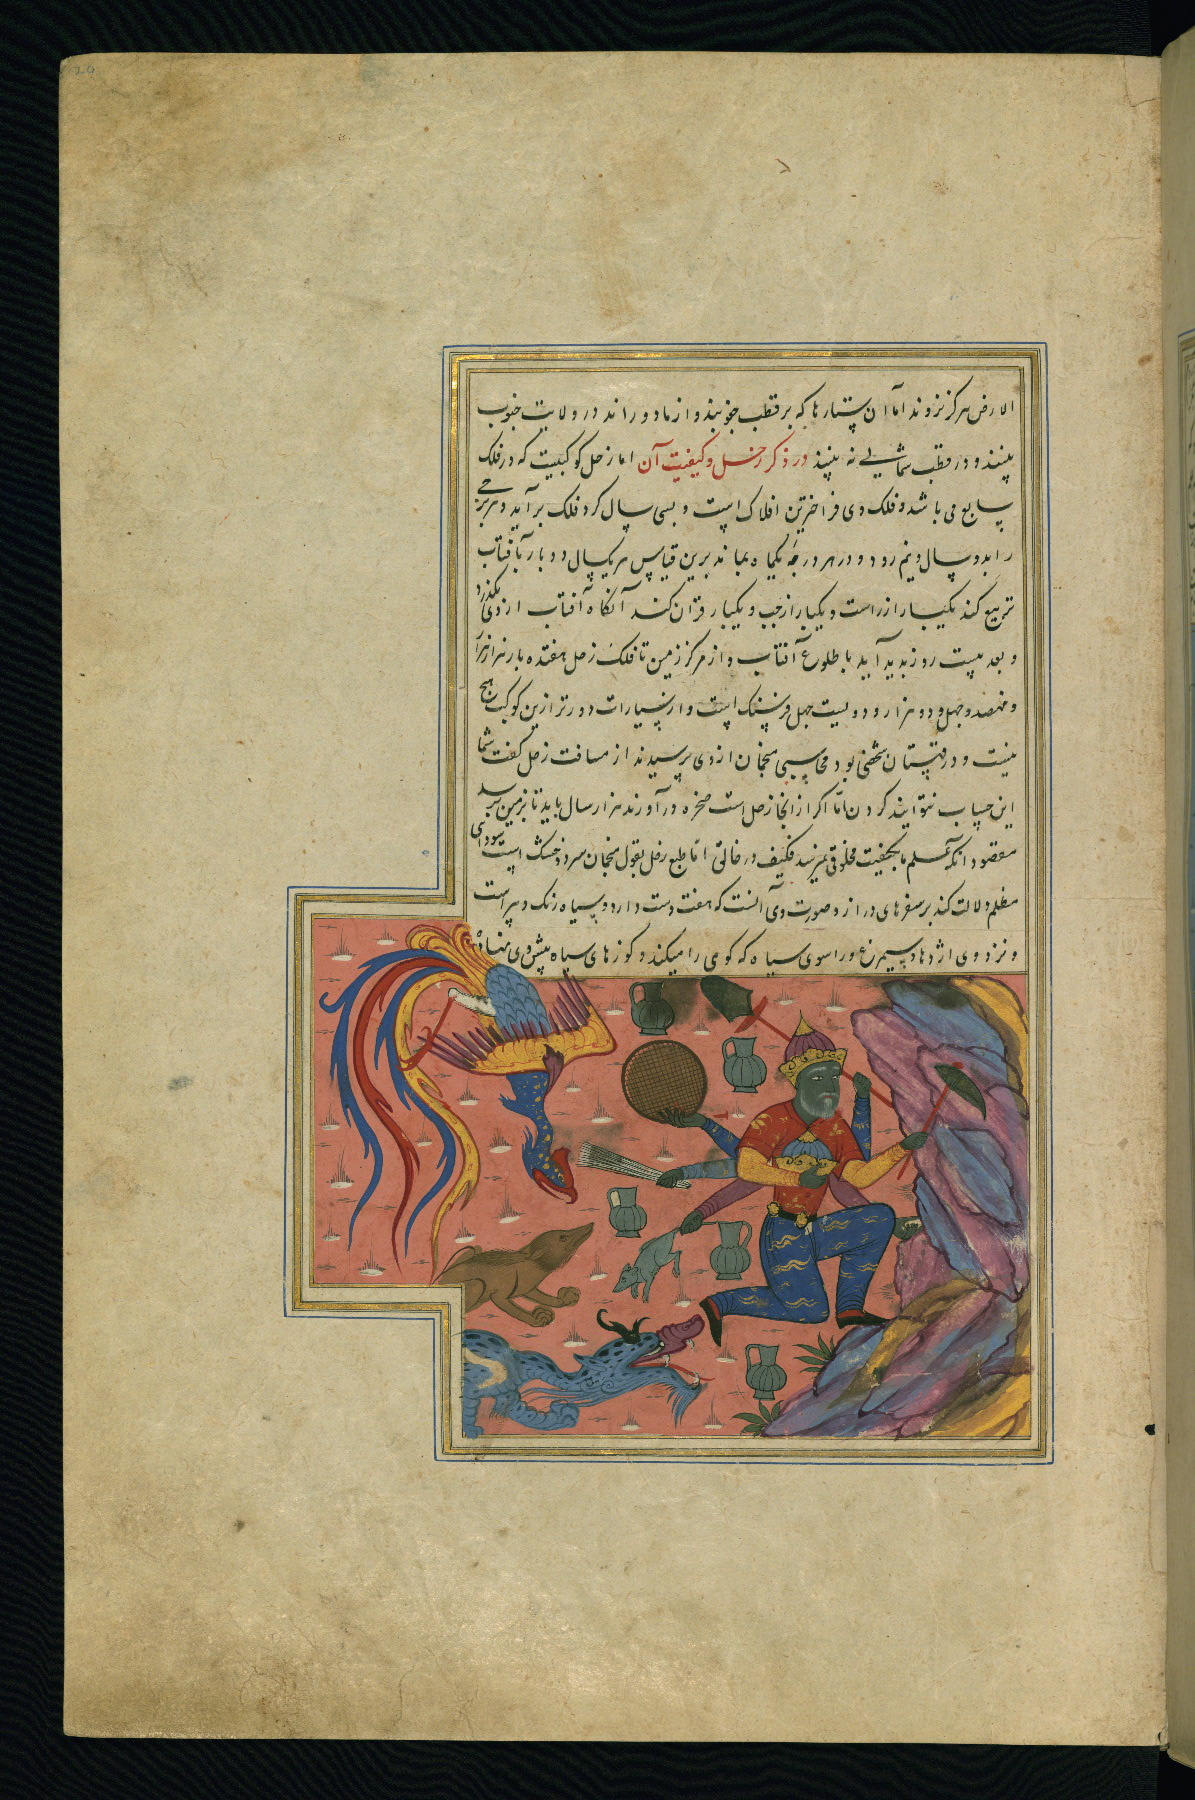 الارض هرکز نروند اما آن ستارها که بر قطب جنوبند و از ما دورانند در ولایت جنوب
بینند و در قطب شمالی نه بینند در ذکر زحل و کیفیت آن اما زحل کوکبیست که در فلک
سابع می باشد و فلک وی فراخترین افلاک است و بسی سال کرد فلک برآید و هر برجی
را بدو سال و نیم رود و در هر درجه یکماه بماند برین قیاس هر یکسال دو بار با آفتاب
تربیع کند یکبار از راست و یکبار از چپ و یکبار قران کند آنکاه آفتاب از وی بکذرد
و بعد بیست روز پدید آید با طلوع آفتاب و از مرکز زمین تا فلک زحل هفده بار هزار هزار
و نهصد و چهل و دو هزار و دویست چهل فرسنک است و از سیارات دورتر ازین کوکب هیچ
نیست و در قهستان شخصی بود محاسبی منجمان از وی پرسیدند از مسافت زحل کفت شما
این حساب نتوانید کردن اما اکر از آنجا زحل است صخره درآورند هزار سال باید تا بزمین رسد
مقصود آنکه علم ما بکیفیت مخلوقی نمیرسد فکیف در خالق اما طبع زحل بقول منجمان سرد و خشک است سودای
مظلم دلالت کند بر سفرهای دراز و صورت وی آنست که هفت دست دارد و سیاه رنک و پیر است
و نزد وی اژدها و سیمرغ و راسوی سیاه که کوی را میکند و کوزهای سیاه پیش وی نهاده